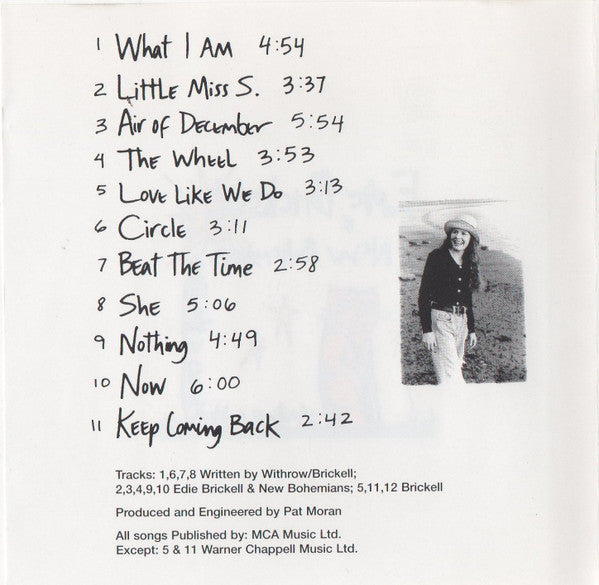 1 What I Am 4:54
2 Little Miss S. 3:37
3 Air of December 5:54
4 The Wheel 3:53
5 Love Like We Do 3:13
6 Circle 3:11
7 Beat The Time 2:58
8 She 5:06
9 Nothing 4:49
10 Now 6:00
11 Keep Coming Back 2:42
Tracks: 1,6,7,8 Written by Withrow/Brickell;
2,3,4,9,10 Edie Brickell & New Bohemians; 5,11,12 Brickell
Produced and Engineered by Pat Moran
All songs Published by: MCA Music Ltd.
Except: 5 & 11 Warner Chappell Music Ltd.